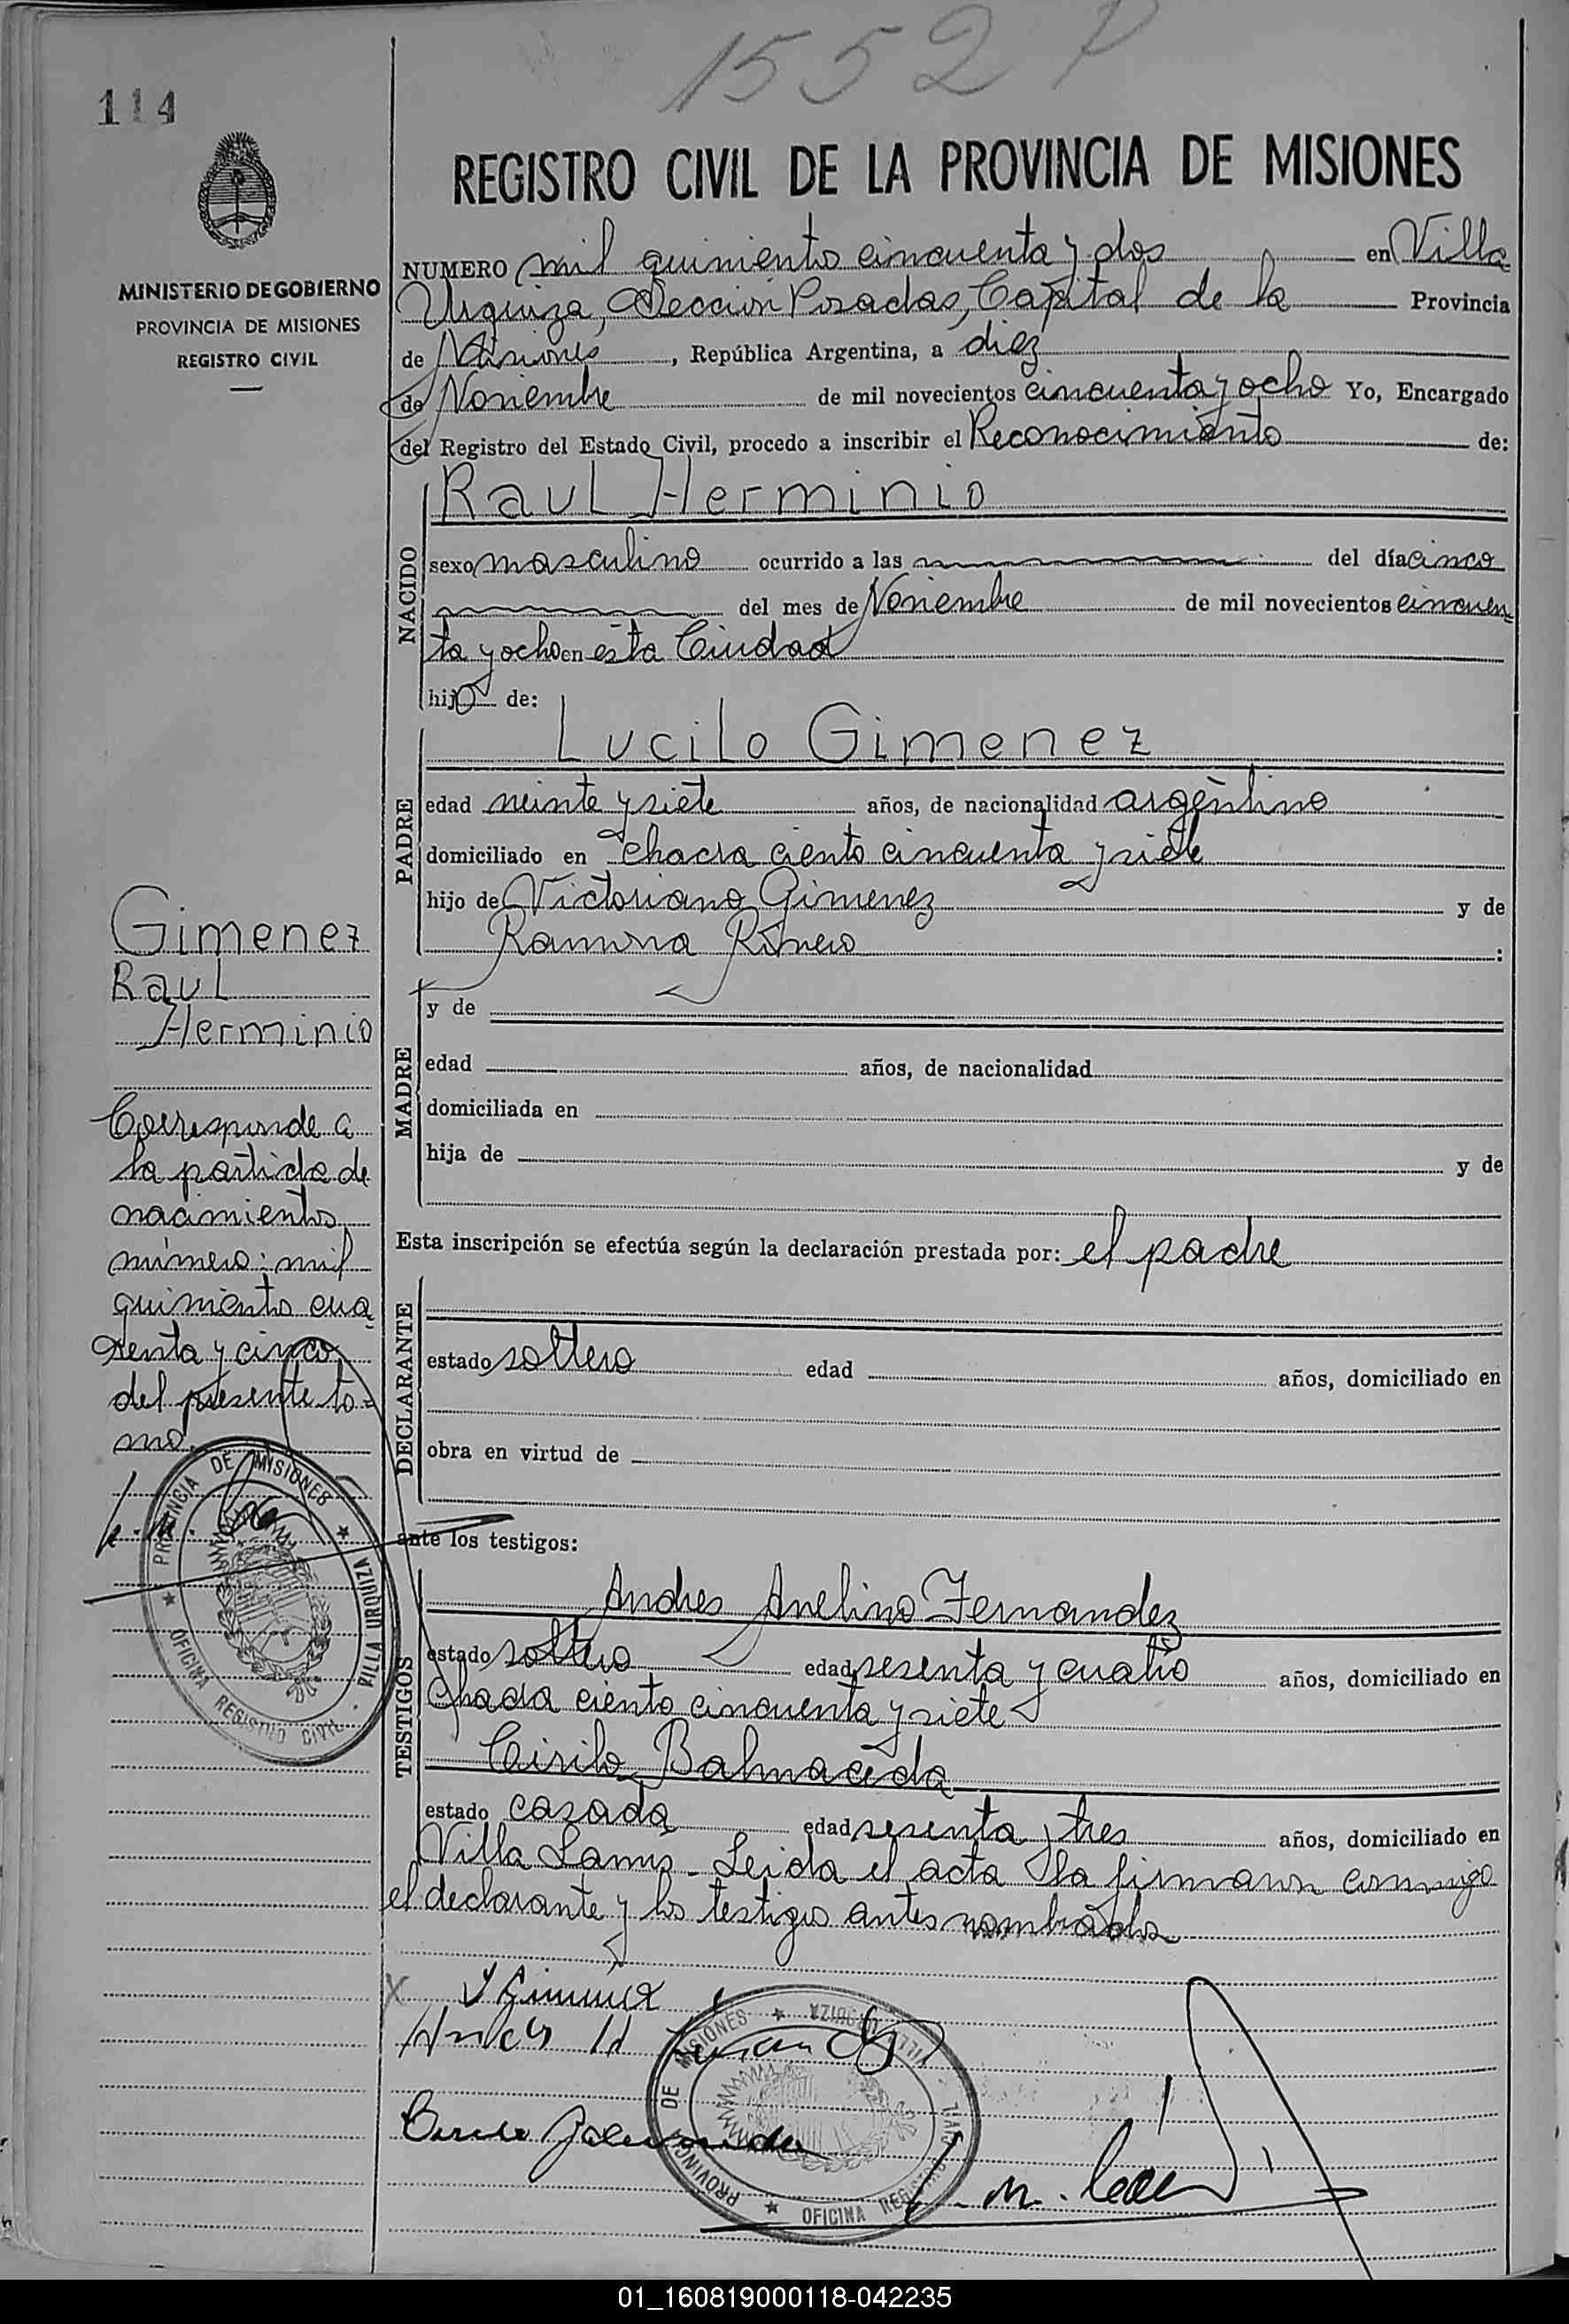 1552 P
114
REGISTRO CIVIL DE LA PROVINCIA DE MISIONES
MINISTERIO DE GOBIERNO
PROVINCIA DE MISIONES
REGISTRO CIVIL
NUMERO mil quiniento cincuenta y dos en Villa
Urquiza, Sección Posadas, Capital de la Provincia
de Misiones, República Argentina, a diez
de Noviembre de mil novecientos cincuenta y ocho Yo, Encargado
del Registro del Estado Civil, procedo a inscribir el Reconocimiento de:
NACIDO
Raul Herminio
sexo masculino ocurrido a las del día cinco
del mes de Noviembre de mil novecientos cincuen=
ta y ocho en esta Ciudad
hijo de:
PADRE
Lucilo Gimenez
edad veinte y siete años, de nacionalidad argentino
domiciliado en chacra ciento cincuenta y siete
hijo de Victoriano Gimenez y de
Ramona :
MADRE
y de
edad años, de nacionalidad
domiciliada en
hija de y de
Esta inscripción se efectúa según la declaración prestada por: el padre
DECLARANTE
estado soltero edad años, domiciliado en
obra en virtud de
ante los testigos:
TESTIGOS
Andres Avelino Fernandez
estado soltero edad sesenta y cuatro años, domiciliado en
chacra ciento cincuenta y siete
Cirilo Balmaceda
estado casada edad sesenta y tres años, domiciliado en
Villa Lanus - Leida el acta la firmaron conmigo
el declarante y los testigos antes nombrados
X L Gimenez
Gimenez
Raul
Herminio
Corresponde a
la partida de
nacimiento
número: mil
quiniento cua
renta y cinco
del presente to=
mo.
PROVINCIA DE MISIONES ★ VILLA URQUIZA
★ OFICINA REGISTRO CIVIL
PROVINCIA DE MISIONES ★ VILLA URQUIZA
★ OFICINA REGISTRO CIVIL
01_160819000118-042235